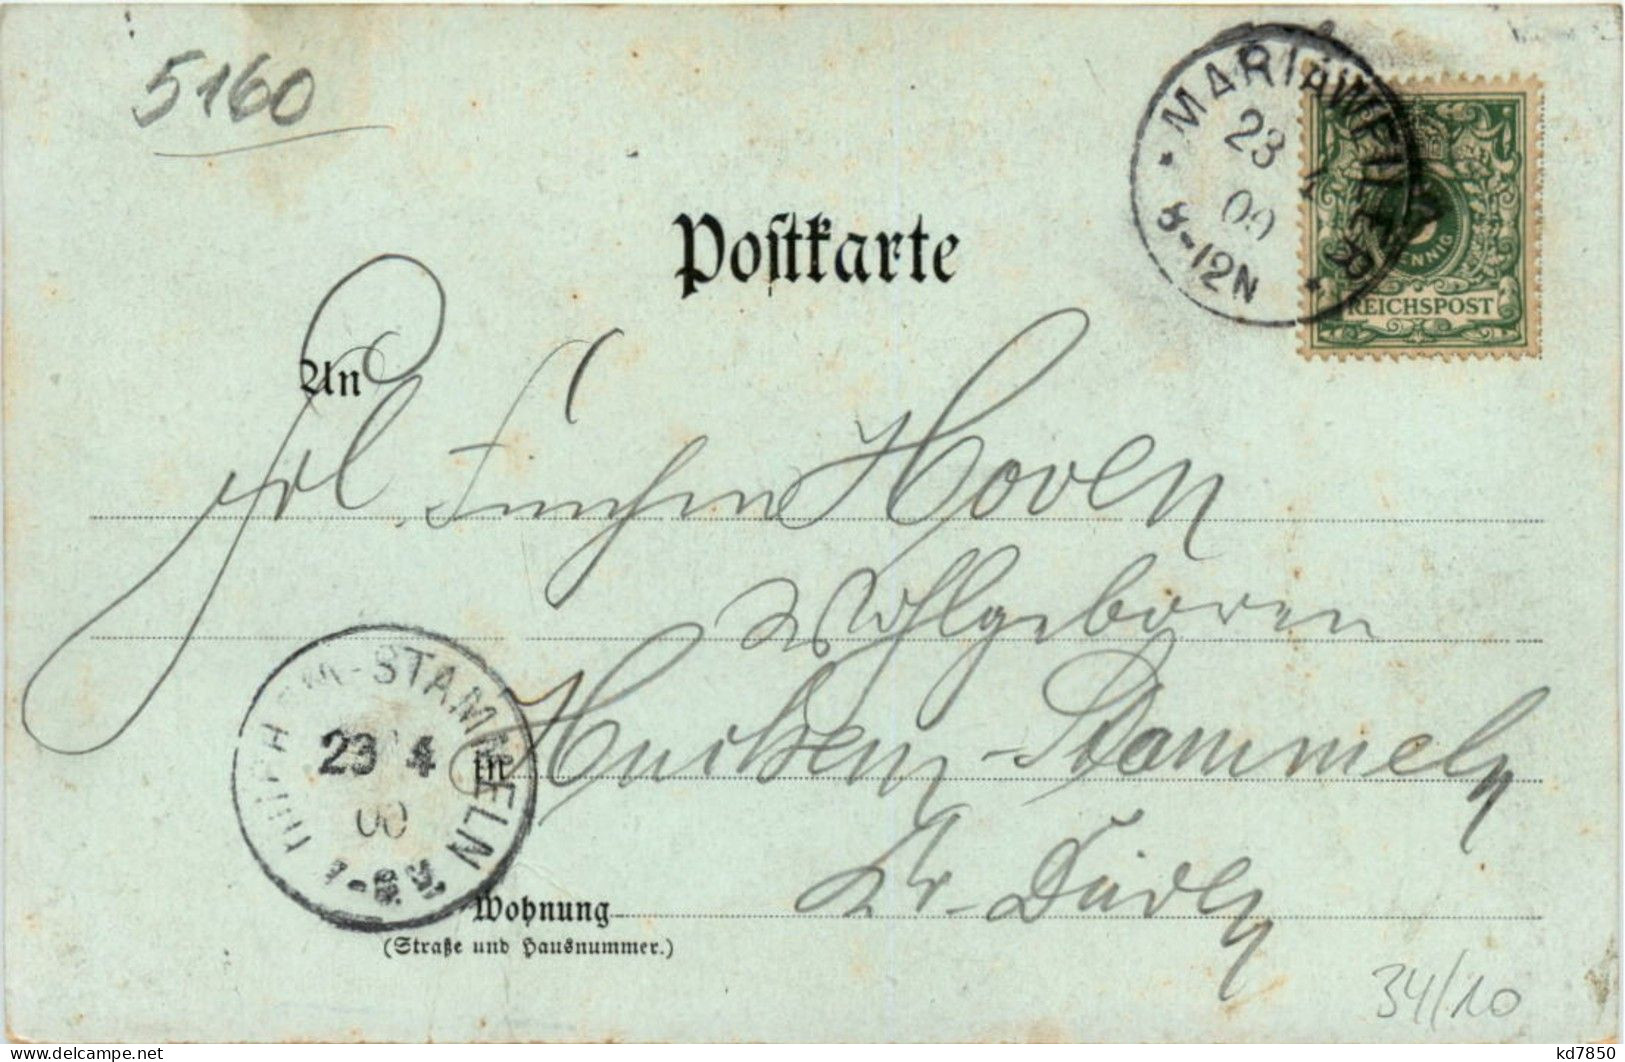 5160
MARIAWEILER
23
00
8-12N
PFENNIG
REICHSPOST
Postkarte
An
Frl. Finchen Hoven
Wohlgeboren
in Huchem-Stammeln
Kr. Düren
HUCHEM-STAMMELN
23 4
00
Wohnung
(Straße und Hausnummer.)
34/10
kd7850